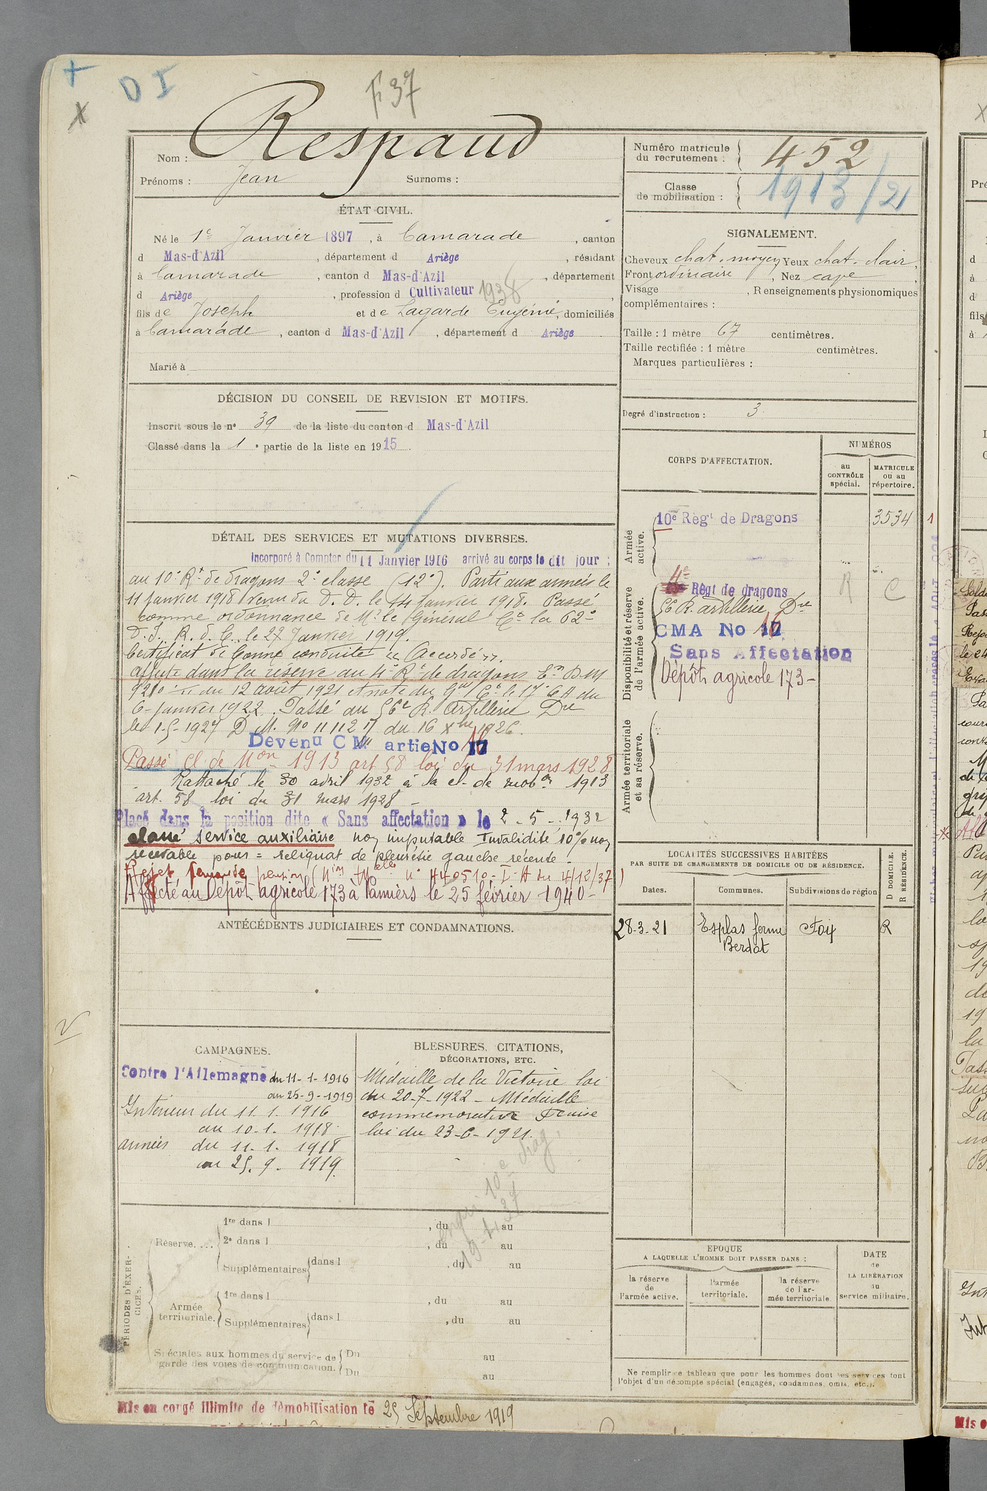 D I
F 37
Nom : Respaud
Prénoms : Jean Surnoms :
Numéro matricule du recrutement : 452
Classe de mobilisation : 1913/21
ÉTAT CIVIL.
Né le 1er Janvier 1897, à Camarade, canton
d Mas-d'Azil, département d Ariège, résidant
à Camarade, canton d Mas-d'Azil, département
d Ariège, profession d Cultivateur 1938
fils de Joseph et de Lagarde Eugénie, domiciliés
à Camarade, canton d Mas-d'Azil, département d Ariège
Marié à
SIGNALEMENT.
Cheveux chat. moyen Yeux chat. clair,
Front ordinaire, Nez cave
Visage, Renseignements physionomiques
complémentaires :
Taille : 1 mètre 67 centimètres.
Taille rectifiée : 1 mètre centimètres.
Marques particulières :
Degré d'instruction : 3
DÉCISION DU CONSEIL DE REVISION ET MOTIFS.
Inscrit sous le n° 39 de la liste du canton d Mas-d'Azil
Classé dans la 1e partie de la liste en 1915.
DÉTAIL DES SERVICES ET MUTATIONS DIVERSES.
Incorporé à Compter du 11 Janvier 1916 arrivé au corps le dit jour :
au 10e Rt de dragons 2e classe (12e). Parti aux armées le
11 Janvier 1918. Venu du D. D. le 11 Janvier 1918. Passé
comme ordonnance de Mr le Général Ct la 62e
D. I. R. d. C. le 27 Janvier 1919.
Certificat de bonne conduite "Accordé".
Affecté dans la réserve au 4e Rt de dragons
du 12 août 1921 et note du Gal Ct le 17e CA du
6 Janvier 1922. Passé au 56e R. Artillerie Dre
le 1-5-1927 D. M. No 11112 17 du 16 Xbre 1926.
Devenu CM artie No 17
Passé cl. de Mon 1913 art 58 loi du 31 mars 1928
Rattaché le 30 avril 1932 à la cl. de mobon 1913
art. 58 loi du 31 mars 1928 -
Placé dans la position dite « Sans affectation » le 2-5-1932
classé service auxiliaire non imputable Invalidité 10% non
recevable pour = reliquat de pleurésie gauche récente -
Rejet demande pension
Affecté au Dépôt agricole 173 à Pamiers le 25 février 1940 -
CORPS D'AFFECTATION.
NUMÉROS
au CONTRÔLE spécial.
MATRICULE ou au répertoire.
Armée active.
10e Régt de Dragons
3534
Disponibilité et réserve de l'armée active.
4e Régt de dragons
R C
56e R. Artillerie Dre
CMA No 17
Sans Affectation
Dépôt agricole 173 -
Armée territoriale et sa réserve.
LOCALITÉS SUCCESSIVES HABITÉES
PAR SUITE DE CHANGEMENTS DE DOMICILE OU DE RÉSIDENCE.
Dates. Communes. Subdivisions de région D DOMICILE. R RÉSIDENCE.
28.3.21 Esplas ferme Berdot Foix R
ANTÉCÉDENTS JUDICIAIRES ET CONDAMNATIONS.
CAMPAGNES.
Contre l'Allemagne du 11-1-1916
au 25-9-1919
Intérieur du 11.1.1916
au 10-1-1918.
armées du 11-1.1918
au 25.9-1919.
BLESSURES, CITATIONS,
DÉCORATIONS, ETC.
Médaille de la Victoire loi
du 20-7-1922 - Médaille
commémorative Française
loi du 23-6-1921.
PÉRIODES D'EXERCICES.
Réserve.... 1re dans l , du au
2e dans l , du au
Supplémentaires dans l , du au
Armée territoriale. 1re dans l , du au
Supplémentaires dans l , du au
Spéciales aux hommes du service de garde des voies de communication. Du au
Du au
EPOQUE
A LAQUELLE L'HOMME DOIT PASSER DANS :
la réserve de l'armée active.
l'armée territoriale.
la réserve de l'armée territoriale
DATE de LA LIBÉRATION du service militaire.
Ne remplir ce tableau que pour les hommes dont les services font
l'objet d'un décompte spécial (engagés, condamnés, omis, etc.).
Mis en congé illimité de démobilisation le 25 Septembre 1919